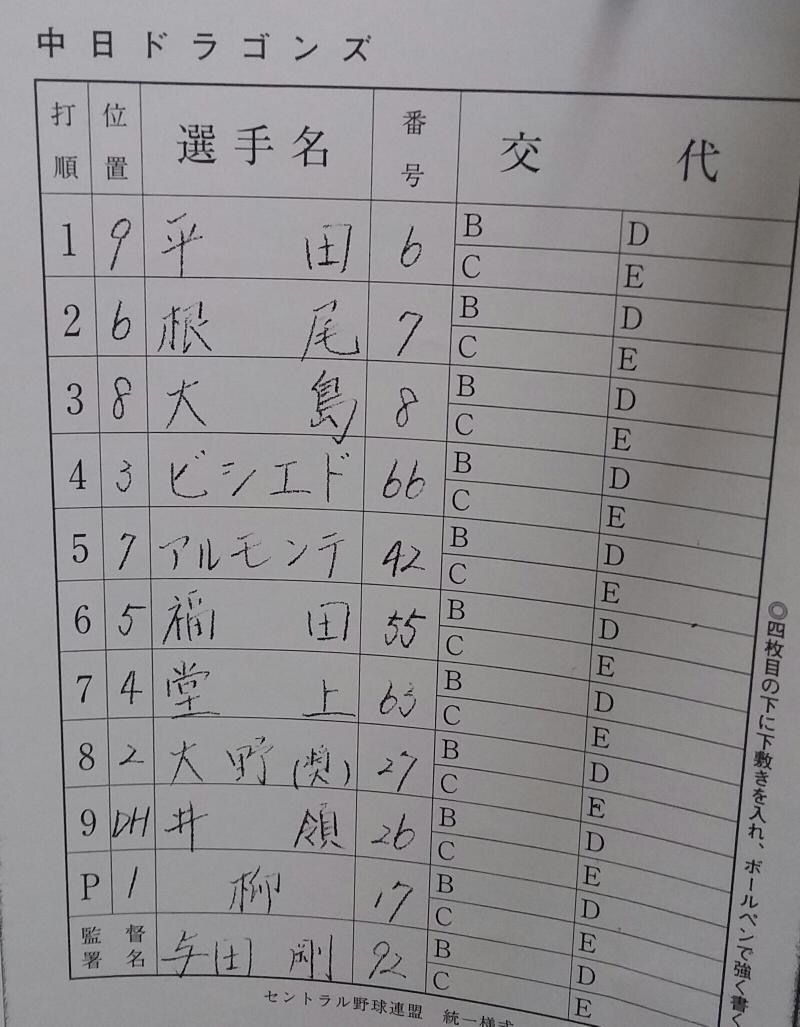 中日ドラゴンズ
打順 位置 選手名 番号 交代
1 9 平田 6 B C D E
2 6 根尾 7 B C D E
3 8 大島 8 B C D E
4 3 ビシエド 66 B C D E
5 7 アルモンテ 42 B C D E
6 5 福田 55 B C D E
7 4 堂上 63 B C D E
8 2 大野(奨) 27 B C D E
9 DH 井領 26 B C D E
P 1 柳 17 B C D E
監督署名 与田剛 92 B C D E
セントラル野球連盟 統一様式
◎四枚目の下に下敷きを入れ、ボールペンで強く書く